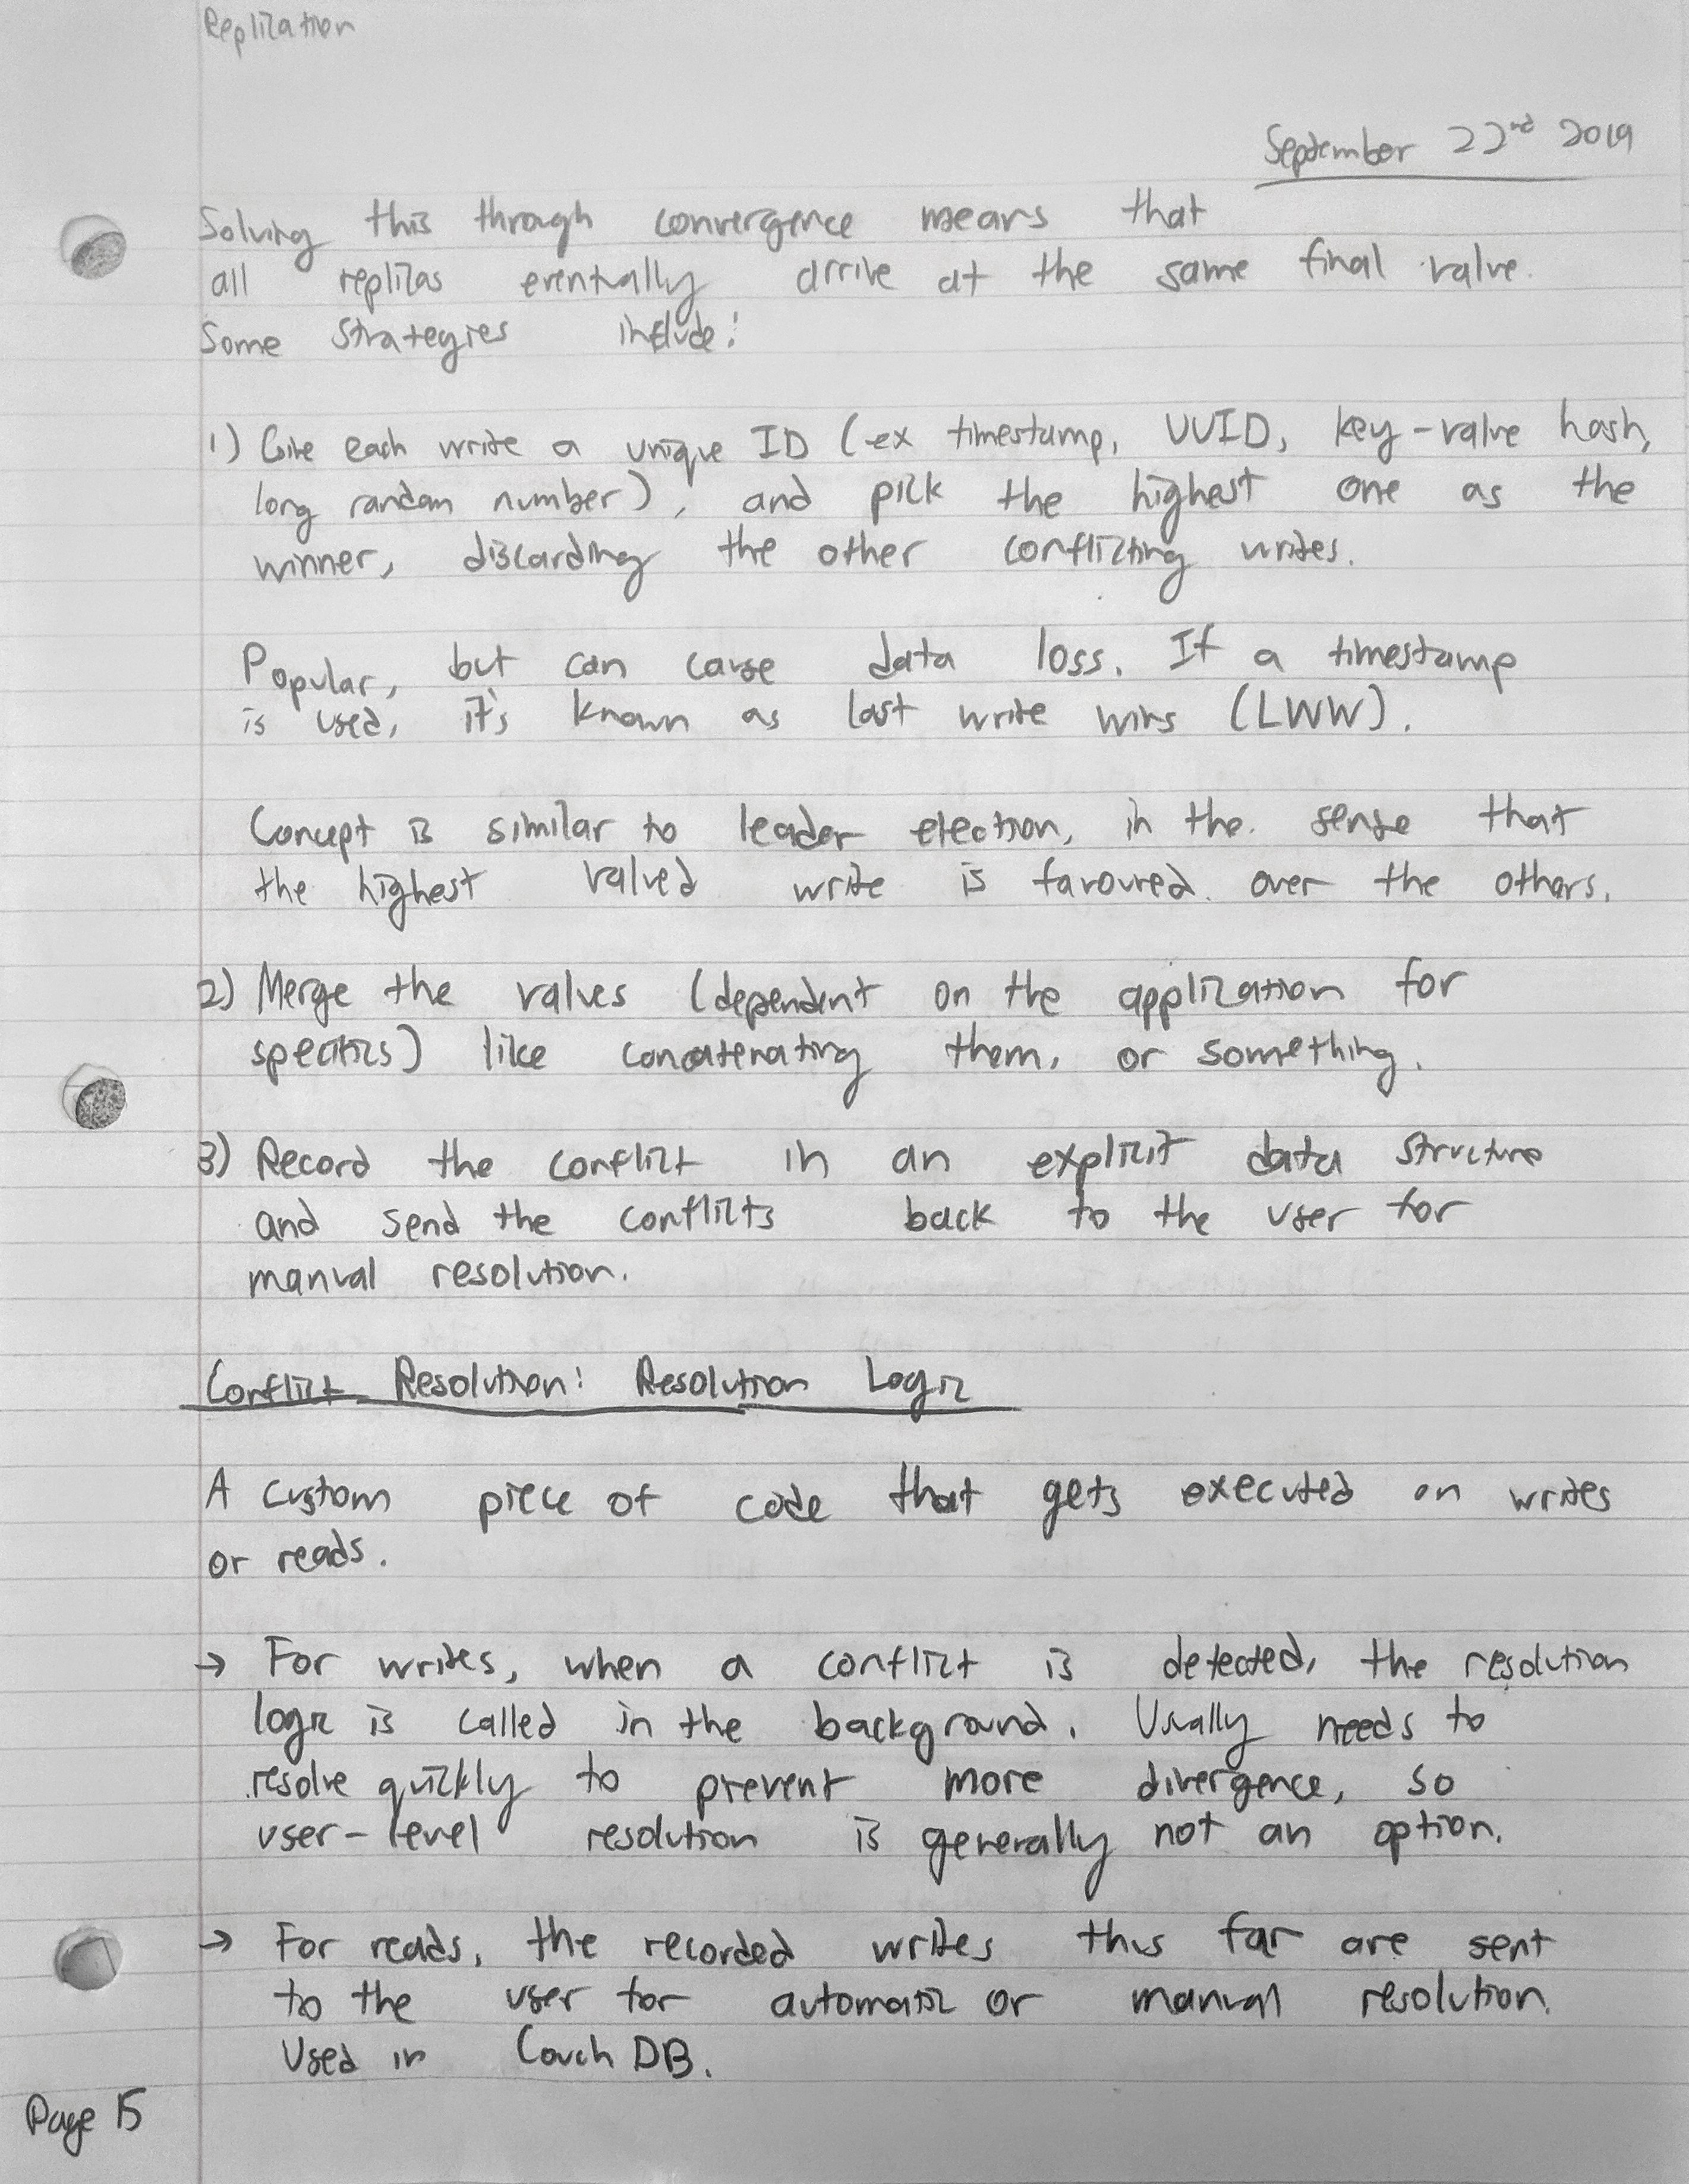 Replication
September 22nd 2019
Solving this through convergence means that
all replicas eventually arrive at the same final value.
Some strategies include:
1) Give each write a unique ID (ex timestamp, UUID, key-value hash,
long random number), and pick the highest one as the
winner, discarding the other conflicting writes.
Popular, but can cause data loss. If a timestamp
is used, it's known as last write wins (LWW).
Concept is similar to leader election, in the sense that
the highest valued write is favoured over the others.
2) Merge the values (dependent on the application for
specifics) like concatenating them, or something.
3) Record the conflict in an explicit data structure
and send the conflicts back to the user for
manual resolution.
Conflict Resolution: Resolution Logic
A custom piece of code that gets executed on writes
or reads.
→ For writes, when a conflict is detected, the resolution
logic is called in the background. Usually needs to
resolve quickly to prevent more divergence, so
user-level resolution is generally not an option.
→ For reads, the recorded writes thus far are sent
to the user for automatic or manual resolution.
Used in Couch DB.
Page 15